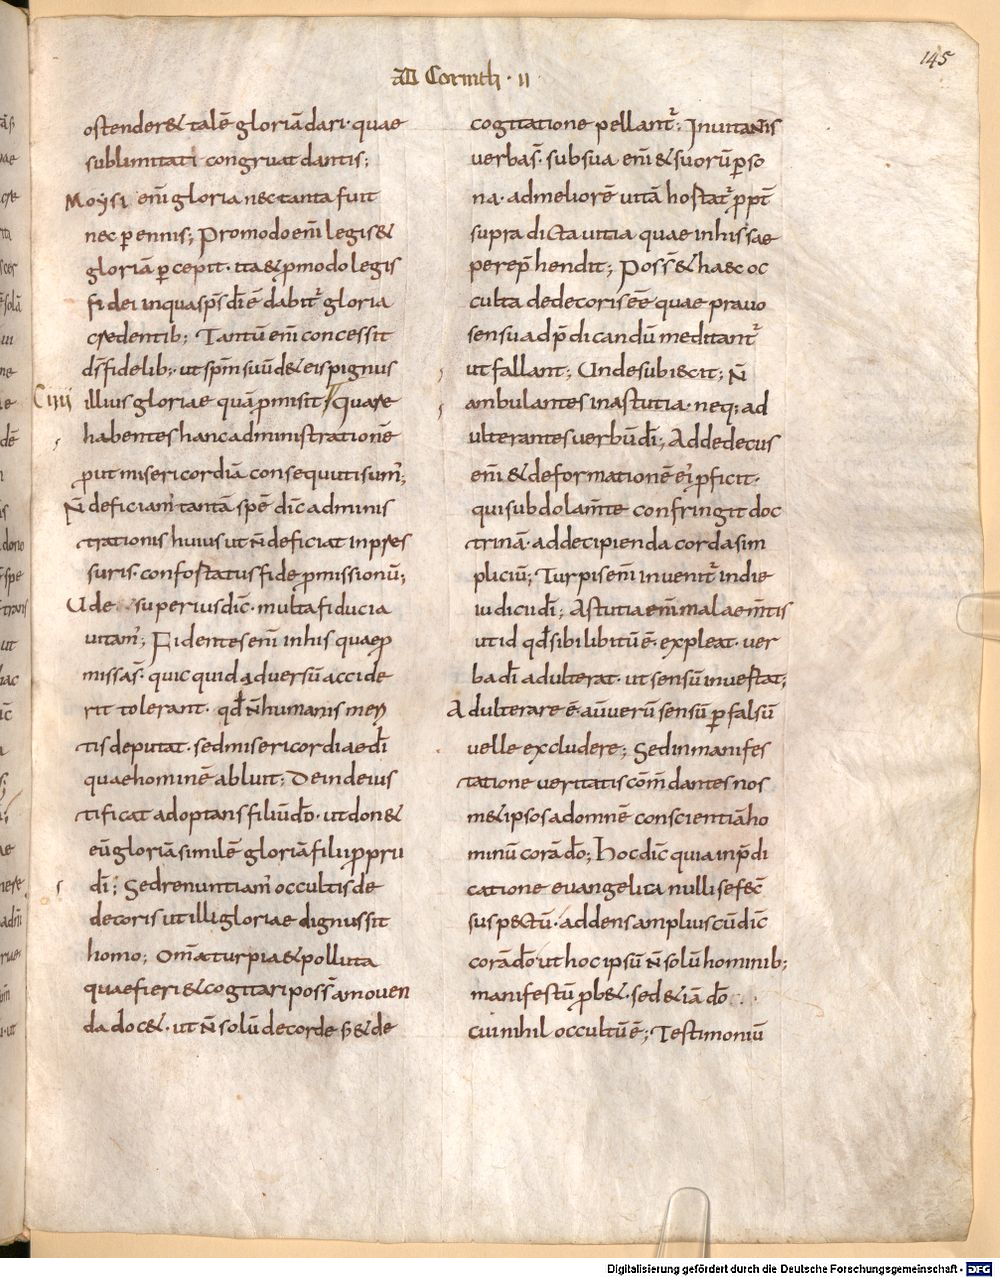 145
AD Corinth · II ·
ostender& talē gloriā dari · quae
sublimitati congruat dantis;
Moysi enī gloria nec tanta fuit
nec perennis; Promodo enī legis &
gloriā percepit · ita & pmodo legis
fidei in qua sps dī ē dabit᷑ gloria
credentib; Tantū enī concessit
ds fidelib; · ut spm suū d& eis pignus
C IIII illius gloriae quā pmisit // quare
habentes hanc administrationē
put misericordiā consequuti sum̄;
N̄ deficiam̄ tantā spē dīc adminis
trationis huius ut n̄ deficiat in pres
suris · confortatus fide pmissionū;
Ude superius dīc · multa fiducia
utam̄; Fidentes enī in his quae p
missa s̄ · quicquid adversū accide
rit tolerant · qđ n̄ humanis men
tis deputat · sed misericordiae dī
quae hominē abluit; Dein deius
tificat adoptans filiū dō · ut don&
eū gloriā similē gloriā filii proprii
dī; Sed renuntiam̄ occultis de
decoris ut illi gloriae dignus sit
homo; Om̄a turpia & polluta
quae fieri & cogitari poss̄ amoven
da doc& · ut n̄ solū de corde s; & de
cogitatione pellant᷑; In vitan̄is
verba s̄ · sub sua enī & suorū pso
na · ad meliorē vitā hostat᷑ ppt̄
supra dicta vitia quae in his sae
pe reprehendit; Poss& haec oc
culta dedecoris eē quae pravo
sensu ad pdicandū meditant᷑
ut fallant; Unde subiecit; N̄
ambulantes in astutia · neq; ad
ulterantes verbū dī; Ad dedecus
enī & deformationē ei pficit ·
qui subdola mte confringit doc
trinā · ad decipienda corda sim
pliciū; Turpis enī invenit᷑ in die
iudicii dī; Astutia enī mala em̄tis
ut id qđ sibi libitū ē · expleat · ver
ba dī adulterat · ut sensū invertat;
Adulterare ē · aū verū sensū p falsū
velle excludere; Sed in manifes
tatione veritatis com̄dantes nos
m& ipsos ad omnē conscientiā ho
minū corā dō; Hoc dīc quia in pdi
catione evangelica nulli se fec̄
suspectū · addens amplius cū dīc
corā dō ut hoc ipsū n̄ solū hominib;
manifestū pb& · sed & iā dō
cui nihil occultū ē; Testimoniū
Digitalisierung gefördert durch die Deutsche Forschungsgemeinschaft - DFG